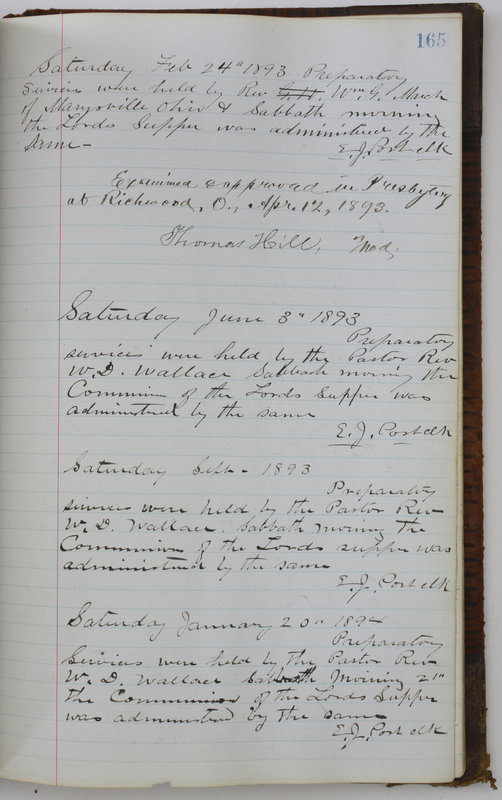 165
Saturday Feb 24" 1893 Preparatory
Services were held by Rev G. H. Wm G. March
of Marysville Ohio & Sabbath morning
the Lords Supper was administered by the
same -
E. J. Post clk
Examined & approved in Presbytery
at Richwood, O., Apr. 12, 1893.
Thomas Hill, Mod,
Saturday June 3" 1893
Preparatory
services were held by the Pastor Rev
W. D. Wallace Sabbath morning the
Communion of the Lords Supper was
administered by the same
E. J. Post clk
Saturday Sept - 1893
Preparatory
services were held by the Pastor Rev
W. D. Wallace. Sabbath morning the
Communion of the Lords supper was
administered by the same
E. J. Post clk
Saturday January 20" 1894
Preparatory
Services were held by the Pastor Rev
W. D. Wallace Sabbath Morning 21"
the Communion of the Lords Supper
was administered by the same
E. J. Post clk